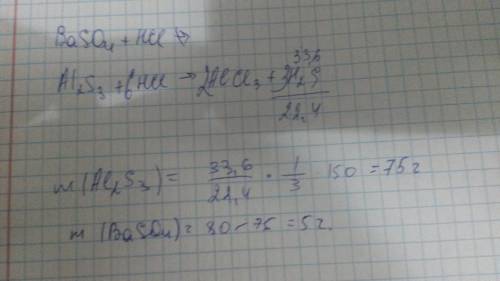 BaSO4 + HCl ↛
33,6
Al2S3 + 6HCl → 2AlCl3 + 3H2S
22,4
m (Al2S3) = 33,6 / 22,4 · 1/3 150 = 75 г
m (BaSO4) = 80 - 75 = 5 г.